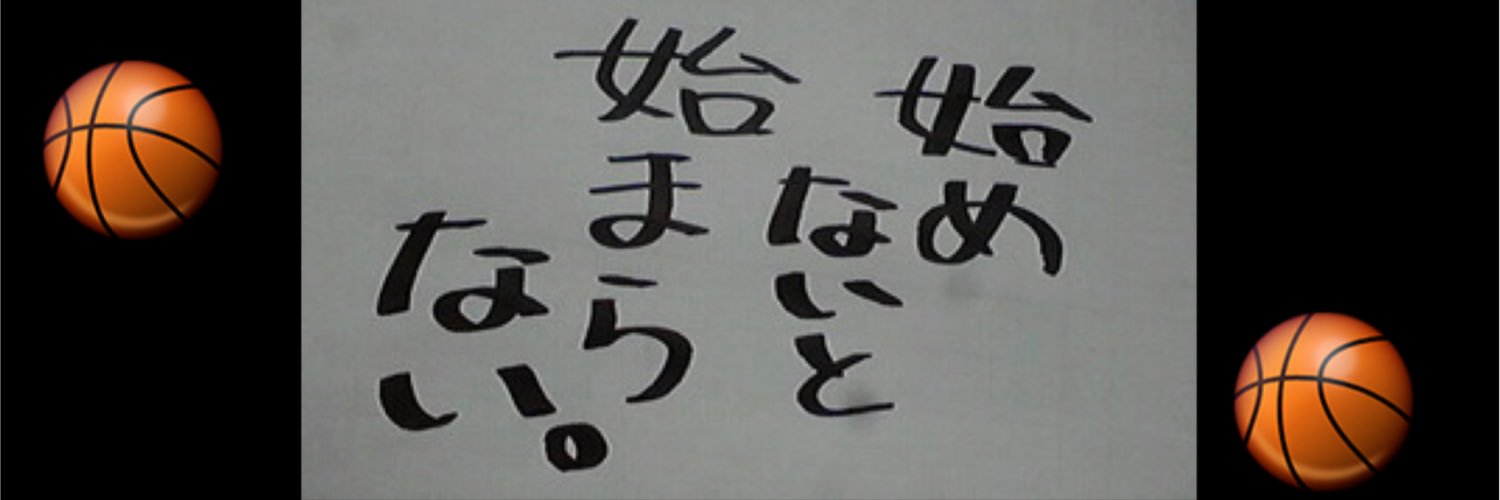 始め
ないと
始まら
ない。